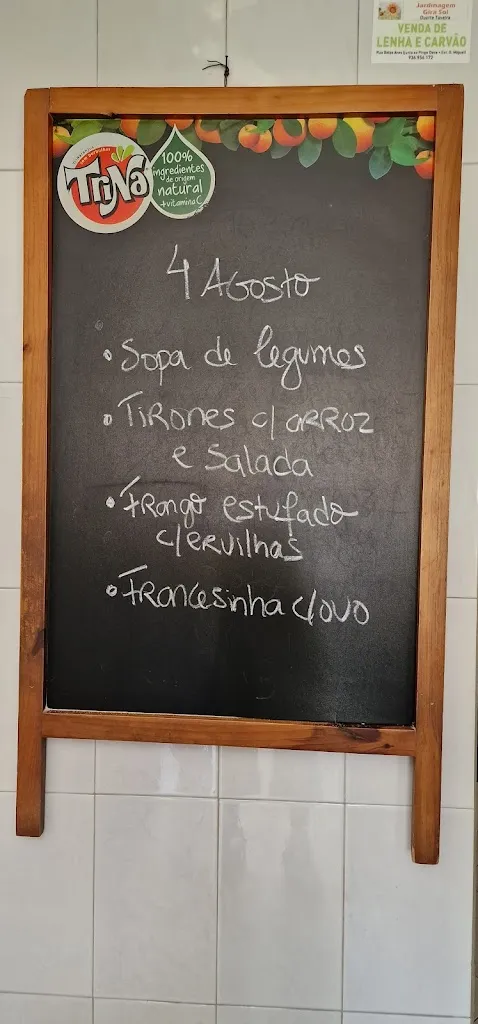 Jardinagem
Gira Sol
Duarte Taveira
VENDA DE
LENHA E CARVÃO
TRINA
100%
ingredientes
de origem
natural
+ vitamina C
4 AGOSTO
• Sopa de legumes
• TIRONES c/ ARROZ
e Salada
• FRANGO estufado
c/ERVILHAS
• FRANCESINHA c/OVO